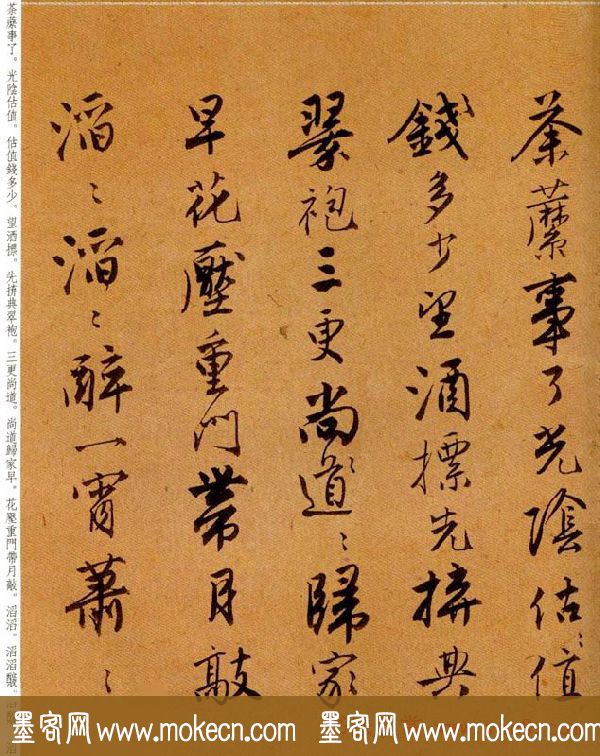 荼蘼事了光陰估〻值〻
錢多少望酒摽先拚典
翠袍三更尚〻道〻歸家
早花壓重門帶月敲
滔〻滔〻醉一宵蕭〻
荼蘼事了。光陰估值。估值錢多少。望酒摽。先拚典翠袍。三更尚道。尚道歸家早。花壓重門帶月敲。滔滔。滔滔醉
墨客网 www.mokecn.com 墨客网 www.mokecn.com